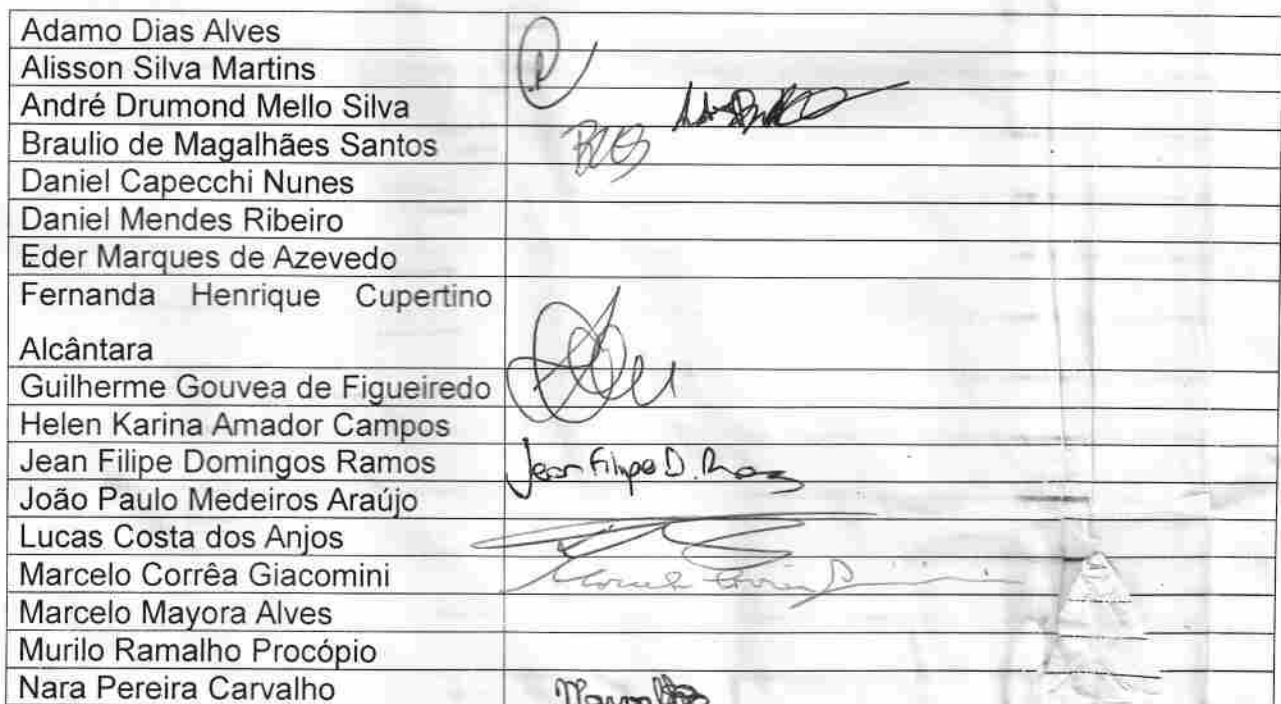 Adamo Dias Alves
Alisson Silva Martins
André Drumond Mello Silva
Braulio de Magalhães Santos
Daniel Capecchi Nunes
Daniel Mendes Ribeiro
Eder Marques de Azevedo
Fernanda Henrique Cupertino
Alcântara
Guilherme Gouvea de Figueiredo
Helen Karina Amador Campos
Jean Filipe Domingos Ramos Jean Filipe D. Ramos
João Paulo Medeiros Araújo
Lucas Costa dos Anjos
Marcelo Corrêa Giacomini
Marcelo Mayora Alves
Murilo Ramalho Procópio
Nara Pereira Carvalho